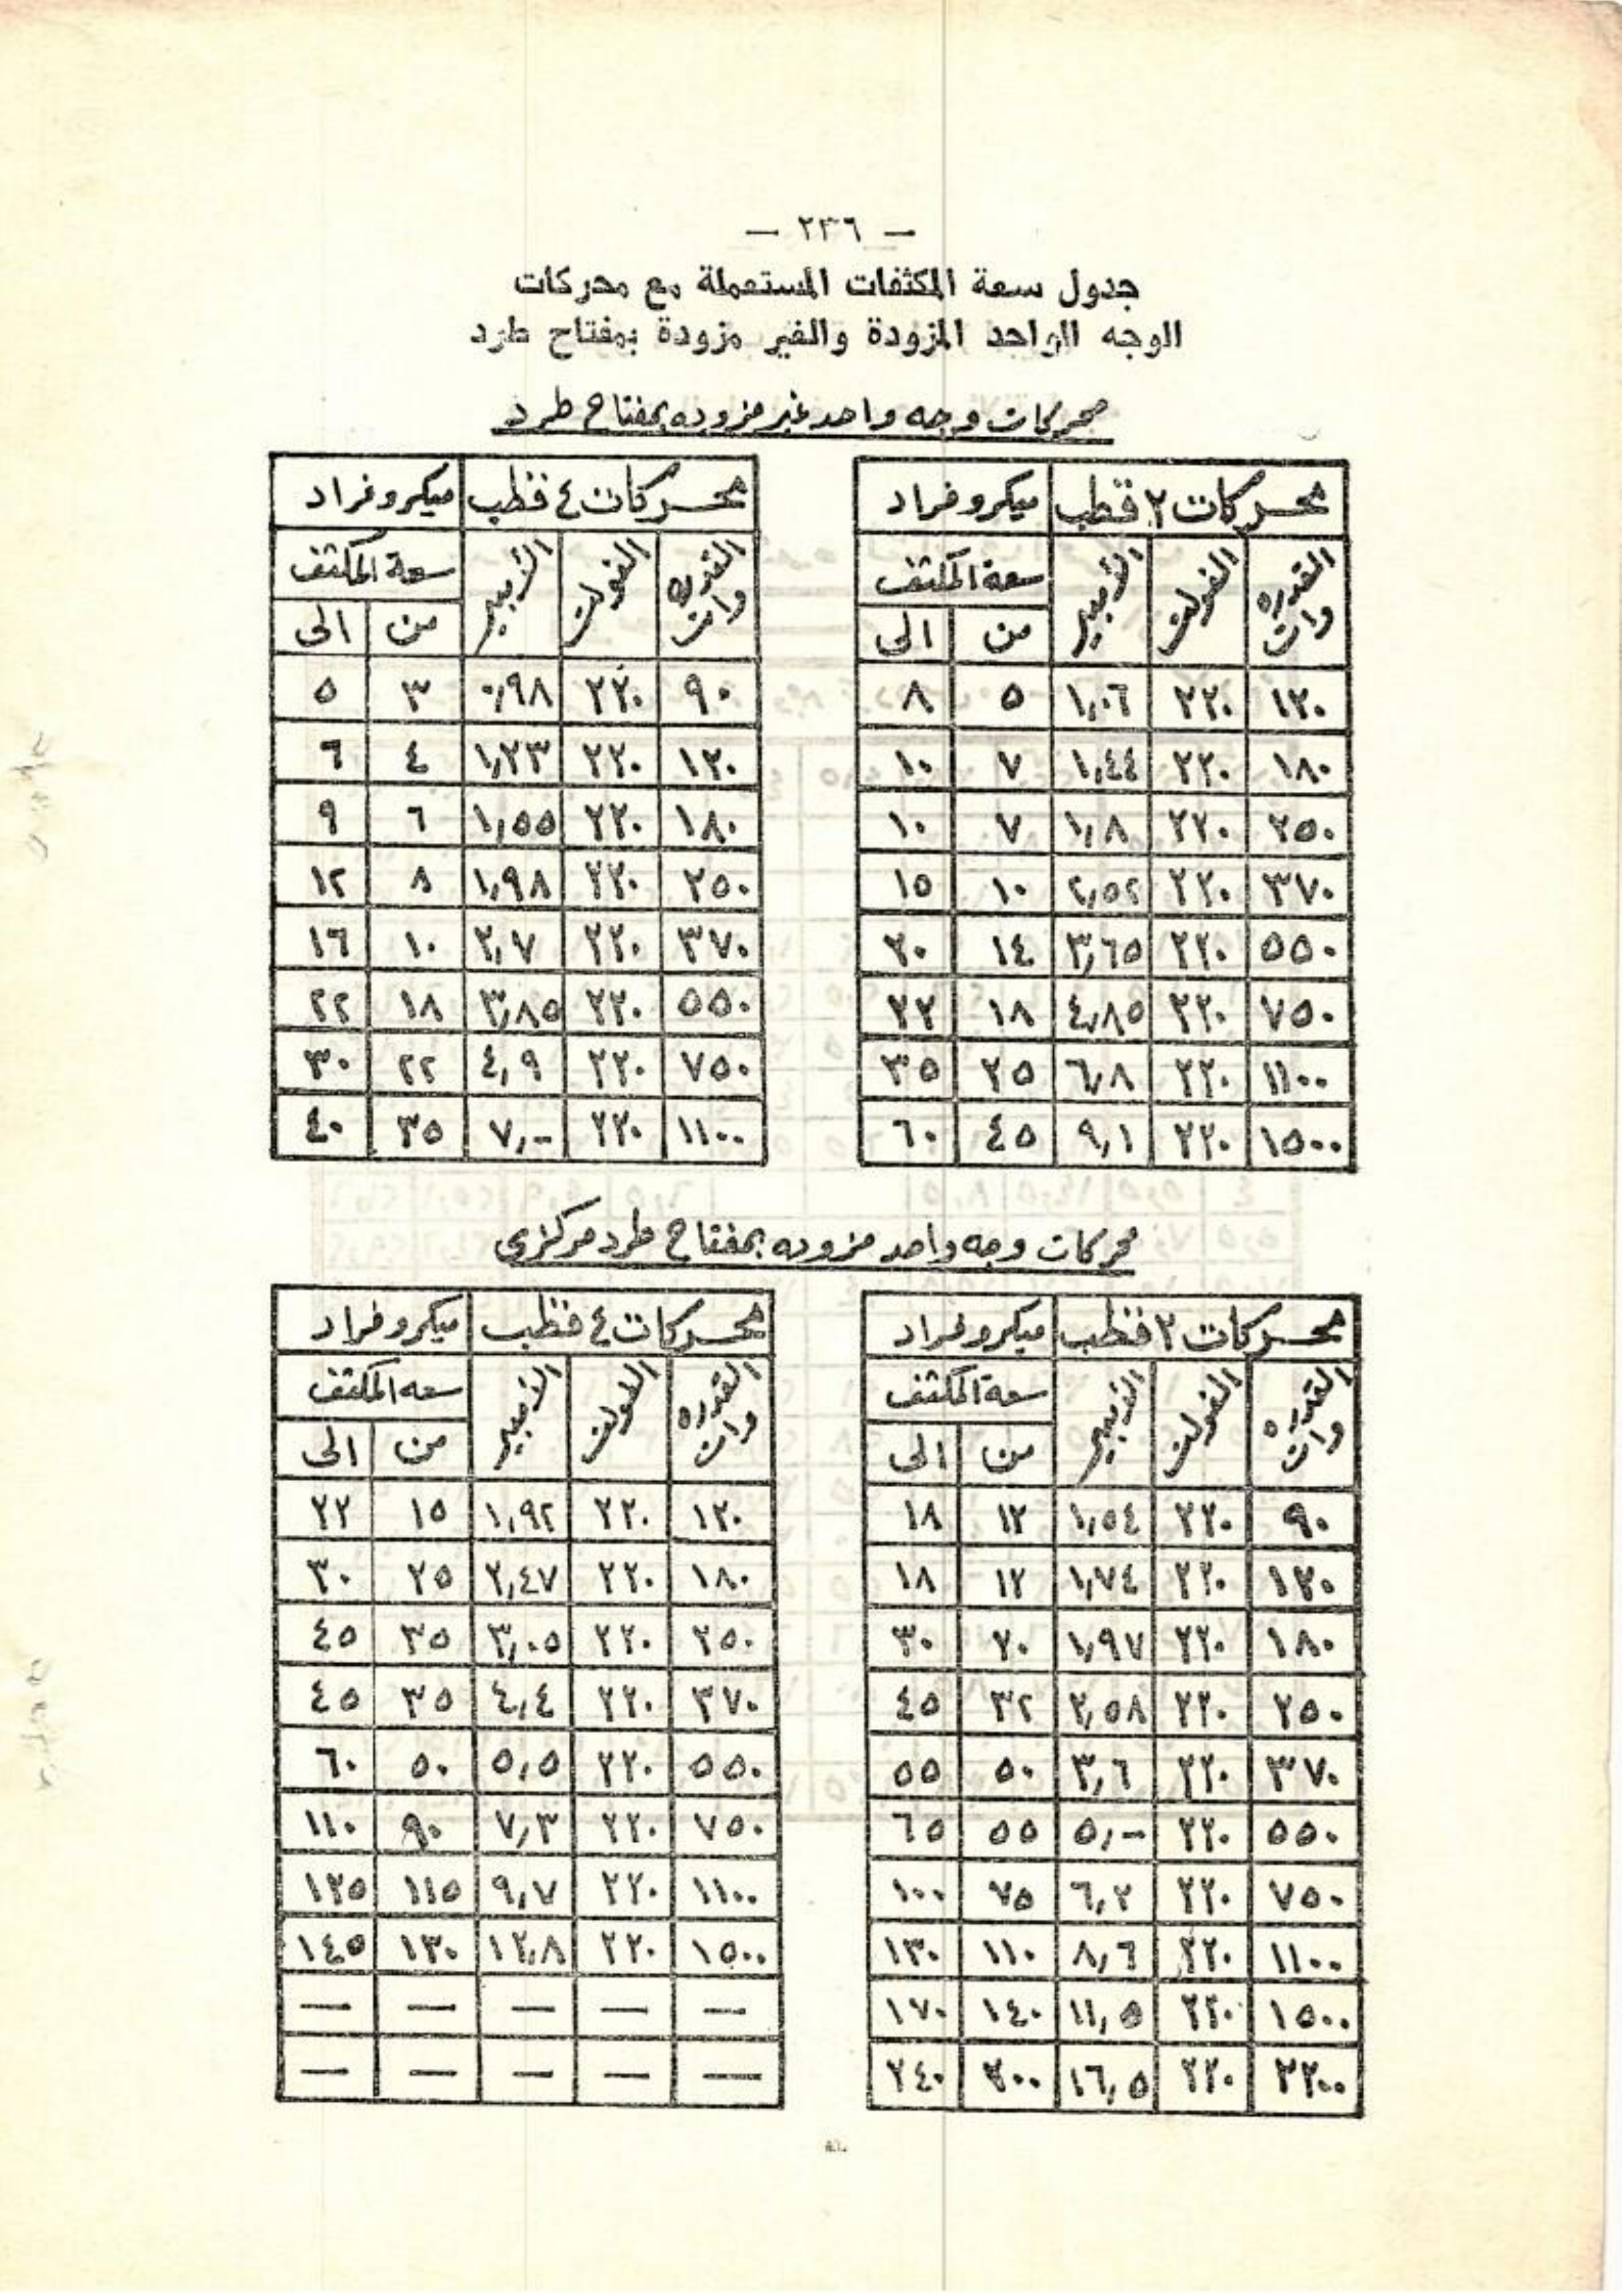 — ٢٣٦ —
جدول سعة المكثفات المستعملة مع محركات
الوجه الواحد المزودة والغير مزودة بمفتاح طرد
محركات وجه واحد غير مزوده بمفتاح طرد
محركات ٢ قطب ميكروفراد
القدره وات الفولت الأمبير سعة المكثف
من الى
١٢٠ ٢٢٠ ١,٠٦ ٥ ٨
١٨٠ ٢٢٠ ١,٤٤ ٧ ١٠
٢٥٠ ٢٢٠ ١,٨ ٧ ١٠
٣٧٠ ٢٢٠ ٢,٥٢ ١٠ ١٥
٥٥٠ ٢٢٠ ٣,٦٥ ١٤ ٢٠
٧٥٠ ٢٢٠ ٤,٨٥ ١٨ ٢٢
١١٠٠ ٢٢٠ ٦,٨ ٢٥ ٣٥
١٥٠٠ ٢٢٠ ٩,١ ٤٥ ٦٠
محركات ٤ قطب ميكروفراد
القدره وات الفولت الأمبير سعة المكثف
من الى
٩٠ ٢٢٠ ٠,٩٨ ٣ ٥
١٢٠ ٢٢٠ ١,٢٣ ٤ ٦
١٨٠ ٢٢٠ ١,٥٥ ٦ ٩
٢٥٠ ٢٢٠ ١,٩٨ ٨ ١٢
٣٧٠ ٢٢٠ ٢,٧ ١٠ ١٦
٥٥٠ ٢٢٠ ٣,٨٥ ١٨ ٢٢
٧٥٠ ٢٢٠ ٤,٩ ٢٢ ٣٠
١١٠٠ ٢٢٠ ٧,- ٣٥ ٤٠
محركات وجه واحد مزوده بمفتاح طرد مركزى
محركات ٢ قطب ميكروفراد
القدره وات الفولت الأمبير سعة المكثف
من الى
٩٠ ٢٢٠ ١,٥٤ ١٢ ١٨
١٢٠ ٢٢٠ ١,٧٤ ١٢ ١٨
١٨٠ ٢٢٠ ١,٩٧ ٢٠ ٣٠
٢٥٠ ٢٢٠ ٢,٥٨ ٣٢ ٤٥
٣٧٠ ٢٢٠ ٣,٦ ٥٠ ٥٥
٥٥٠ ٢٢٠ ٥,- ٥٥ ٦٥
٧٥٠ ٢٢٠ ٦,٢ ٧٥ ١٠٠
١١٠٠ ٢٢٠ ٨,٦ ١١٠ ١٣٠
١٥٠٠ ٢٢٠ ١١,٥ ١٤٠ ١٧٠
٢٢٠٠ ٢٢٠ ١٦,٥ ٢٠٠ ٢٤٠
محركات ٤ قطب ميكروفراد
القدره وات الفولت الأمبير سعه المكثف
من الى
١٢٠ ٢٢٠ ١,٩٢ ١٥ ٢٢
١٨٠ ٢٢٠ ٢,٤٧ ٢٥ ٣٠
٢٥٠ ٢٢٠ ٣,٠٥ ٣٥ ٤٥
٣٧٠ ٢٢٠ ٤,٤ ٣٥ ٤٥
٥٥٠ ٢٢٠ ٥,٥ ٥٠ ٦٠
٧٥٠ ٢٢٠ ٧,٣ ٩٠ ١١٠
١١٠٠ ٢٢٠ ٩,٧ ١١٥ ١٢٥
١٥٠٠ ٢٢٠ ١٢,٨ ١٣٠ ١٤٥
— — — — —
— — — — —